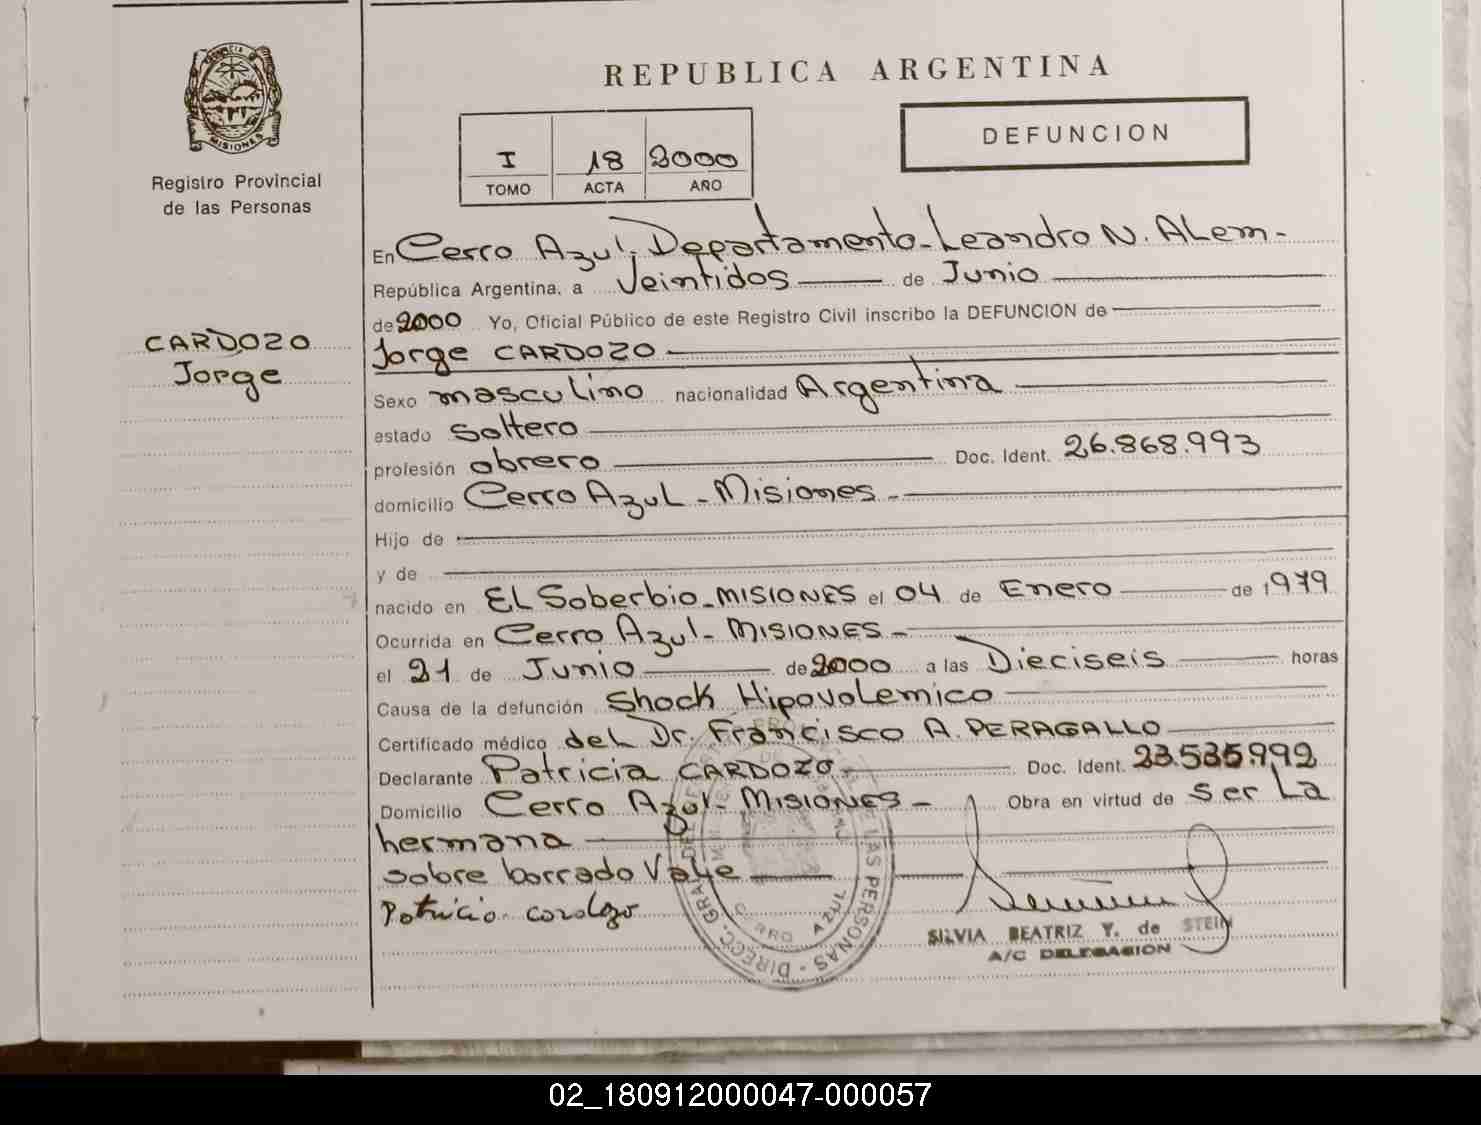 PROVINCIA DE
MISIONES
Registro Provincial
de las Personas
CARDOZO
Jorge
REPUBLICA ARGENTINA
I 18 2000
TOMO ACTA AÑO
DEFUNCION
En Cerro Azul - Departamento - Leandro N. Alem -
República Argentina, a Veintidos de Junio
de 2000 Yo, Oficial Público de este Registro Civil inscribo la DEFUNCION de
Jorge CARDOZO
Sexo masculino nacionalidad Argentina
estado Soltero
profesión obrero Doc. Ident. 26.868.993
domicilio Cerro Azul - Misiones -
Hijo de
y de
nacido en El Soberbio - MISIONES el 04 de Enero de 1979
Ocurrida en Cerro Azul - MISIONES -
el 21 de Junio de 2000 a las Dieciseis horas
Causa de la defunción Shock Hipovolemico
Certificado médico del Dr. Francisco A. PERAGALLO
Declarante Patricia CARDOZO - Doc. Ident. 23.535.992
Domicilio Cerro Azul - MISIONES - Obra en virtud de ser la
hermana
sobre borrado Vale
Patricia cardozo
DE LAS PERSONAS - DIRECC. GRAL. DEL
CERRO AZUL
SILVIA BEATRIZ Y. de STEIN
A/C DELEGACION
02_180912000047-000057